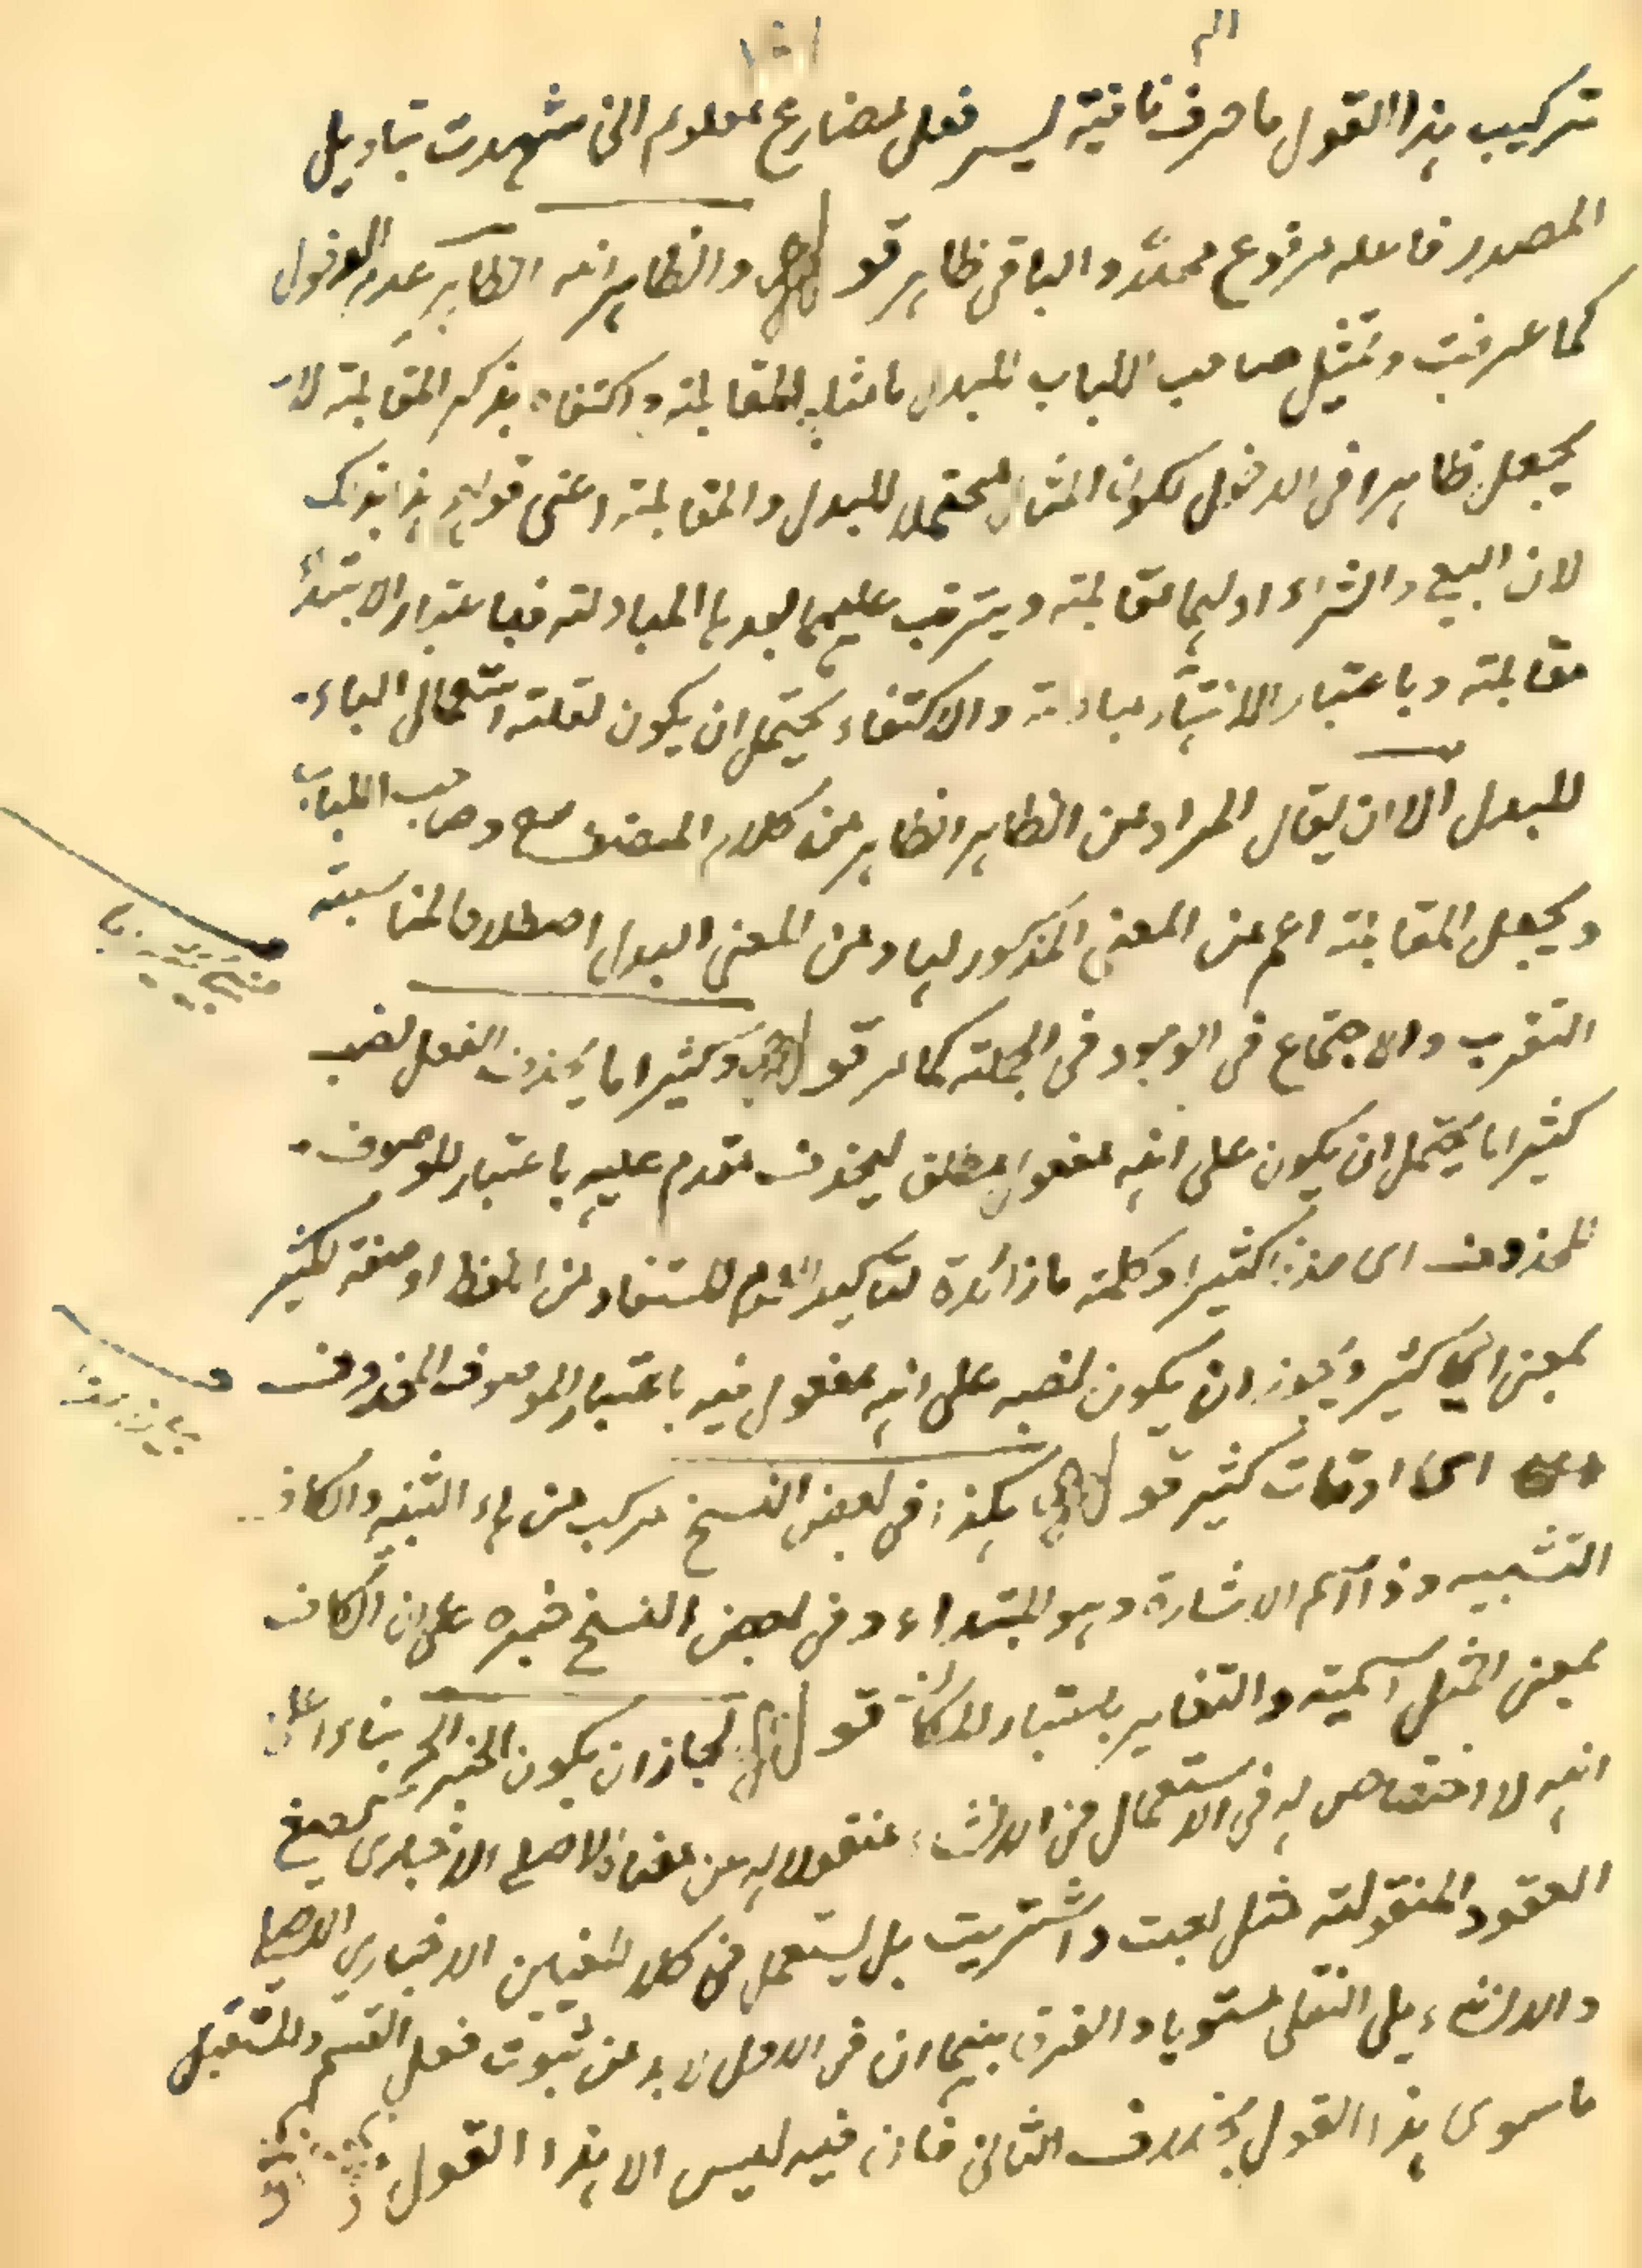 تركيب هذا القول ما حرف نافية ليسر فعل مضارع معلوم اني شهدت بتاويل
المصدر فاعله مرفوع محلا والباقي ظاهر قوله والظاهر انه الظاهر عدم الدخول
كما عرفت وتمثيل صاحب اللباب للبدل بامثلة المقابلة واكتفاه بذكر المقابلة لا
يجعل ظاهرا في الدخول لكون المثال محتملا للبدل والمقابلة اعني قولهم هذا بذاك
لان البيع والشراء اولهما مقابلة ويترتب عليهما بعدها المبادلة فباعتبار الابتداء
مقابلة وباعتبار الانتهاء مبادلة والاكتفاء يحتمل ان يكون لقلته استعمال الباء
للبدل الا ان يقال المراد من الظاهر الظاهر من كلام المصنف وصاحب اللباب
ويجعل المقابلة اعم من المعنى المذكور لها ومن المعنى البدل اصطلاحا لمناسبته
التقرب والاجتماع في الوجود في الجملة كما مر قوله وكثيرا ما يحذف الفعل نصب
كثيرا ما يحتمل ان يكون على انه مفعول مطلق ليحذف مقدم عليه باعتبار الموصوف
المحذوف اى حذفا كثيرا وكلمة ما زائدة لتاكيد المستفاد من اللفظ او صفة لكثير
بمعنى اي كثير ويجوز ان يكون نصبه على انه مفعول فيه باعتبار الموصوف المحذوف
اى اوقات كثير قوله هكذا في بعض النسخ مركب من هاء التنبيه والكاف
التشبيه وذا اسم الاشارة وهو المبتداء وفي بعض النسخ خبره على ان الكاف
بمعنى المثل اسمية والتغاير باعتبار المكان قوله لجاز ان يكون الخبر الخ بناءا على
انه لا اختصاص له في الاستعمال في الانشاء منقولا له عن معناه الاصلي الاخباري كصيغ
العقود المنقولة مثل بعت واشتريت بل يستعمل في كلا المعنيين الاخباري الاصلي
والانشاء على النقلي مستويا والفرق بينهما ان في الاول لا بد من ثبوت فعل القسم والمستقبل
ما سوى هذا القول بخلاف الثاني فان فيه ليس الا هذا القول